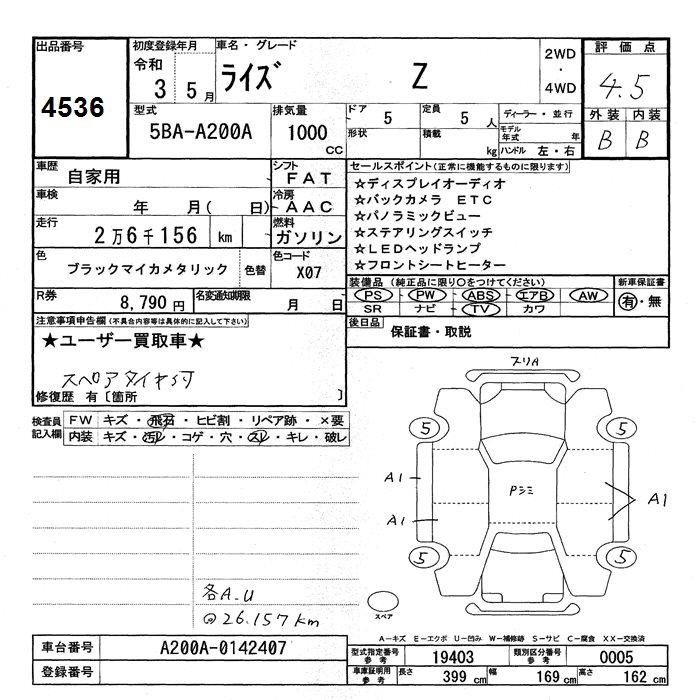 出品番号
4536
初度登録年月
令和
3 5月
車名・グレード
ライズ Z
2WD
・
4WD
評価点
4.5
外装 内装
B B
型式
5BA-A200A
排気量
1000
CC
ドア 5
定員 5 人
形状
積載 kg
ディーラー・並行
モデル年式 年
ハンドル 左・右
車歴
自家用
シフト
FAT
車検
年 月( 日)
冷房
AAC
走行
2万6千156 km
燃料
ガソリン
色
ブラックマイカメタリック
色替
色コード
X07
R券
8,790円
名変通知期限
月 日
セールスポイント(正常に機能するものに限ります)
☆ディスプレイオーディオ
☆バックカメラ ETC
☆パノラミックビュー
☆ステアリングスイッチ
☆LEDヘッドランプ
☆フロントシートヒーター
装備品 (純正品に限り○をつけてください)
PS PW ABS エアB AW
SR ナビ TV カワ
新車保証書
有・無
後日品
保証書・取説
注意事項申告欄(不具合内容等は具体的に記入して下さい)
★ユーザー買取車★
スペアタイヤ
修復歴 有〔箇所 〕
検査員
記入欄
FW キズ・飛石・ヒビ割・リペア跡・×要
内装 キズ・汚レ・コゲ・穴・スレ・キレ・破レ
各A.U
@26.157km
スリA
5 5
A1
Pシミ
A1
A1
5 5
スペア
A-キズ E-エクボ U-凹み W-補修跡 S-サビ C-腐食 XX-交換済
車台番号
A200A-0142407
登録番号
型式指定番号
参考
19403
類別区分番号
参考
0005
車庫証明用
参考
長さ 399 cm
幅 169 cm
高さ 162 cm